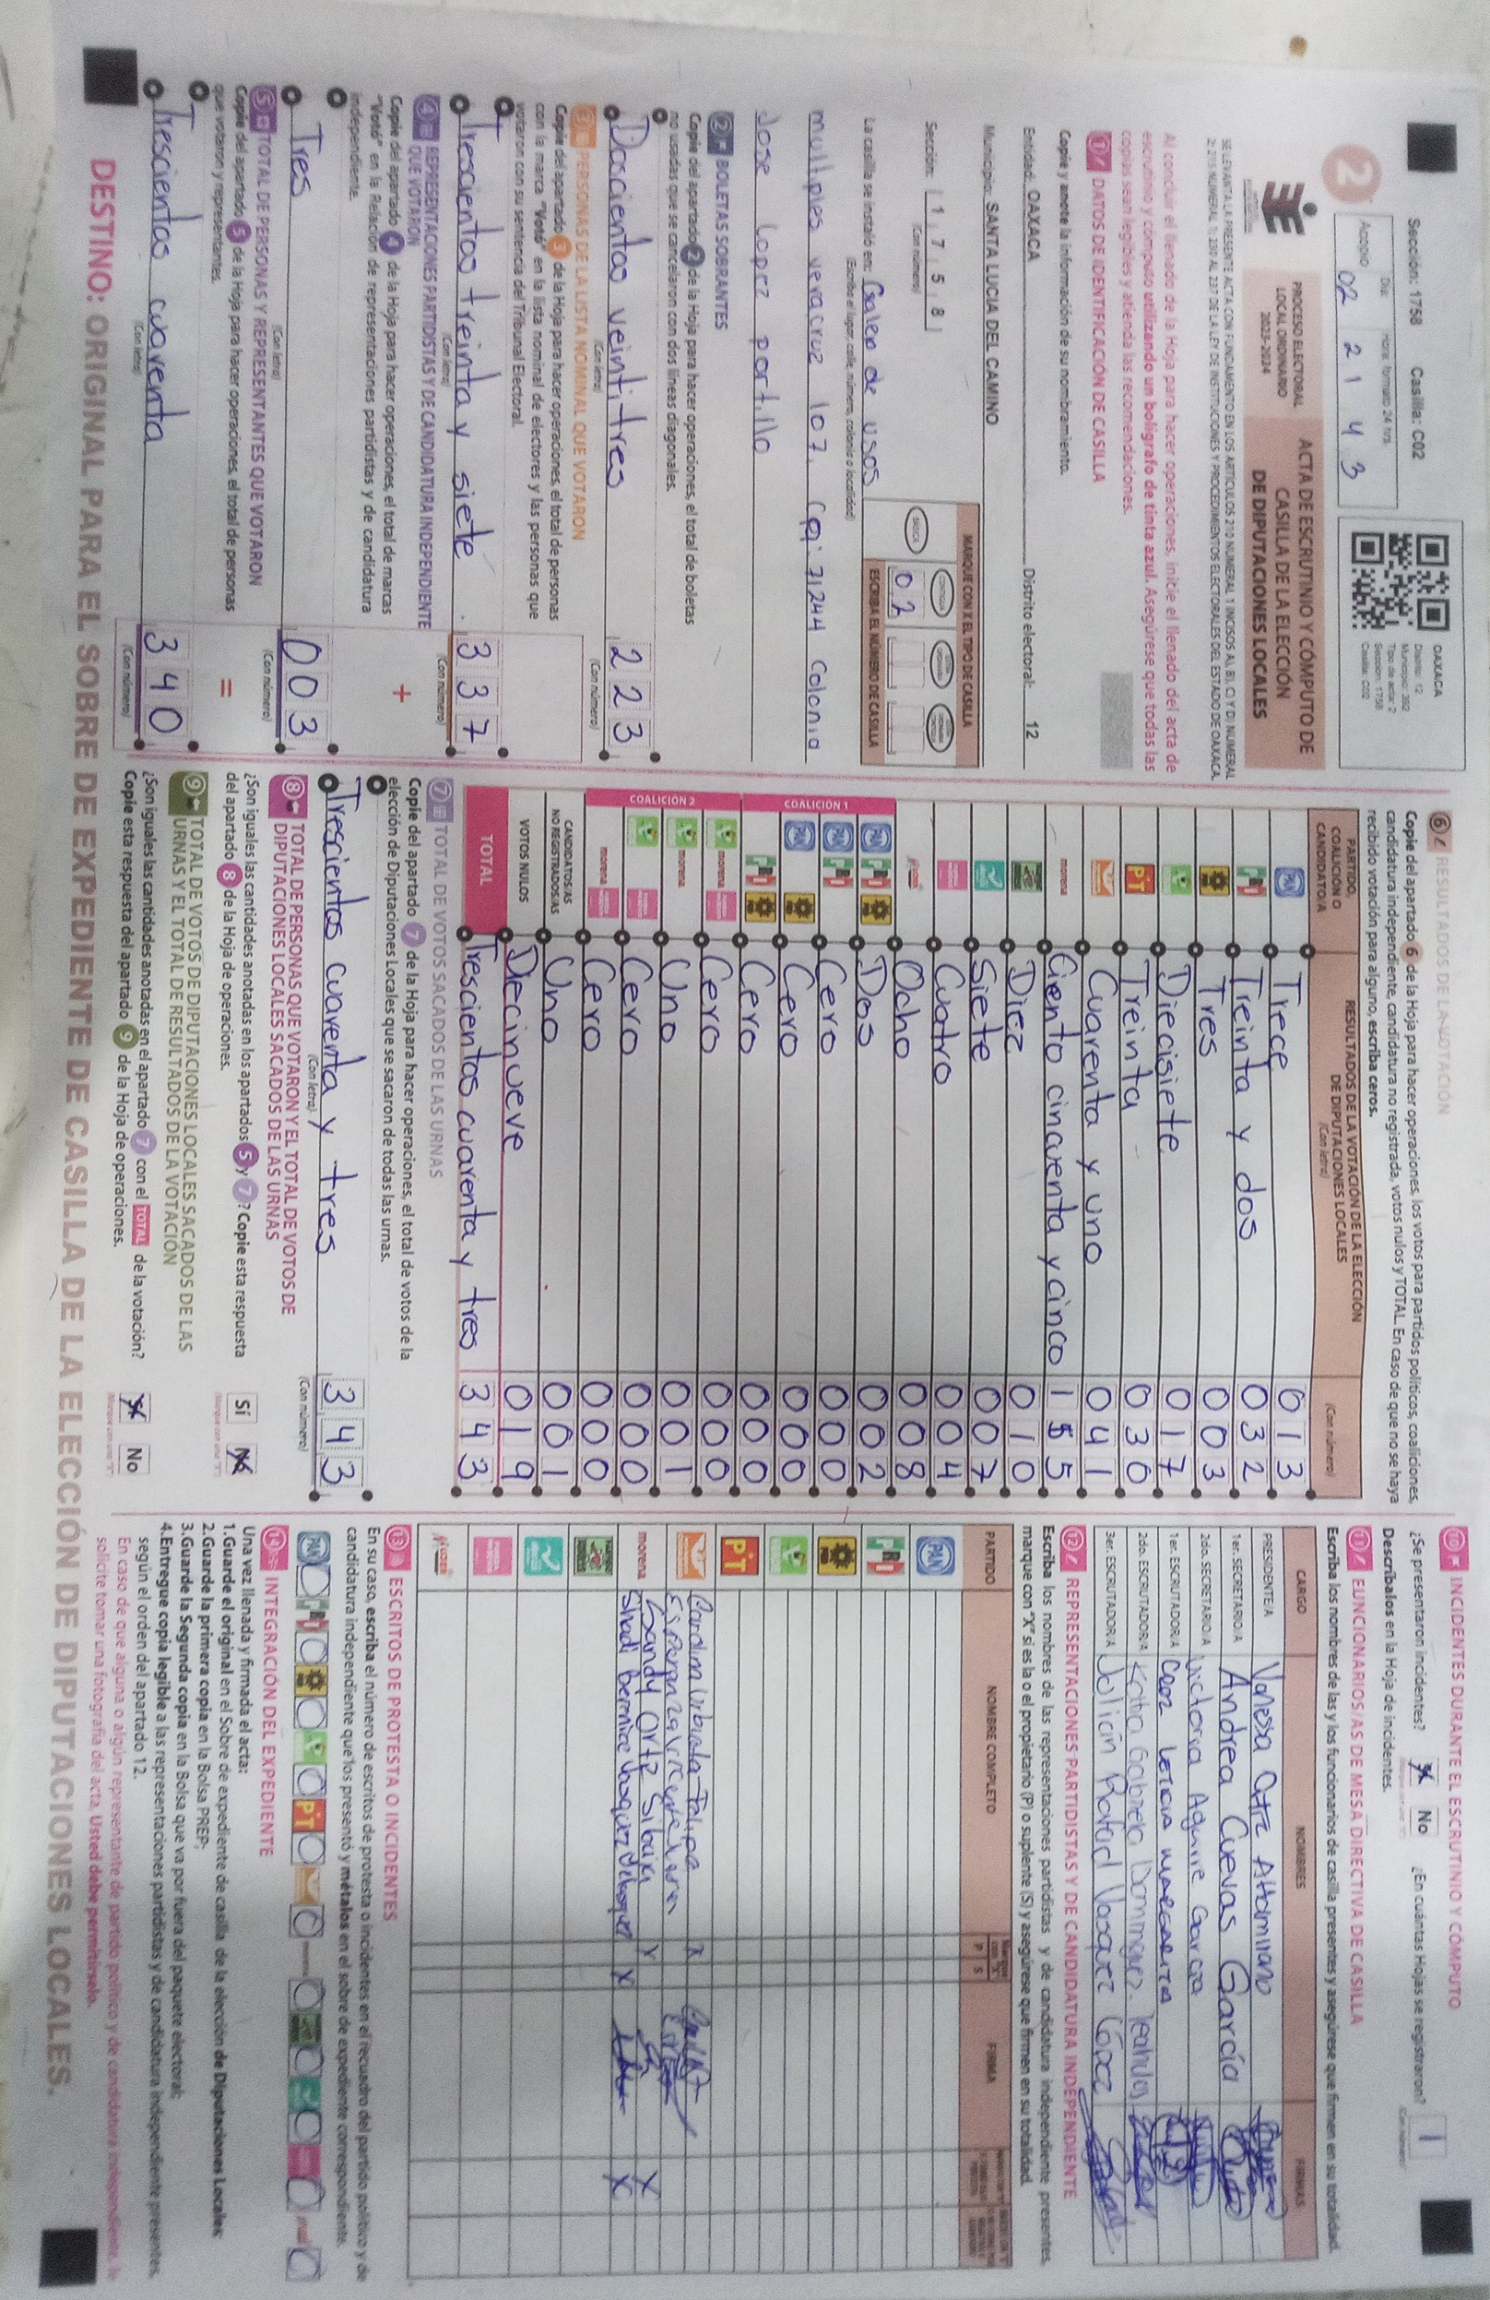 Sección: 1758 Casilla: C02
Día: Hora: formato 24 hrs.
Acopio 02 21 43
OAXACA
Distrito: 12
Municipio: 392
Tipo de acta: 2
Sección: 1758
Casilla: C02
2
PROCESO ELECTORAL
LOCAL ORDINARIO
2023-2024
ACTA DE ESCRUTINIO Y CÓMPUTO DE
CASILLA DE LA ELECCIÓN
DE DIPUTACIONES LOCALES
Al concluir el llenado de la Hoja para hacer operaciones, inicie el llenado del acta de
escrutinio y cómputo utilizando un bolígrafo de tinta azul. Asegúrese que todas las
copias sean legibles y atienda las recomendaciones.
1 DATOS DE IDENTIFICACIÓN DE CASILLA
Copie y anote la información de su nombramiento.
Entidad: OAXACA Distrito electoral: 12
Municipio: SANTA LUCIA DEL CAMINO
Sección: 1 7 5 8
(Con número)
MARQUE CON X EL TIPO DE CASILLA
BÁSICA
02
ESCRIBA EL NÚMERO DE CASILLA
La casilla se instaló en: Galeo de usos
(Escriba el lugar, calle, número, colonia o localidad)
multiples veracruz 107, Cp: 71244 Colonia
Jose Lopez portillo
2 BOLETAS SOBRANTES
Copie del apartado 2 de la Hoja para hacer operaciones, el total de boletas
no usadas que se cancelaron con dos líneas diagonales.
Doscientos veintitres 223
(Con letra) (Con número)
3 PERSONAS DE LA LISTA NOMINAL QUE VOTARON
Copie del apartado 3 de la Hoja para hacer operaciones, el total de personas
con la marca "Votó" en la lista nominal de electores y las personas que
votaron con su sentencia del Tribunal Electoral.
Trescientos treinta y siete 337
(Con letra) (Con número)
4 REPRESENTACIONES PARTIDISTAS Y DE CANDIDATURA INDEPENDIENTE
QUE VOTARON
Copie del apartado 4 de la Hoja para hacer operaciones, el total de marcas
"Votó" en la Relación de representaciones partidistas y de candidatura
independiente.
+
Tres 003
(Con letra) (Con número)
5 TOTAL DE PERSONAS Y REPRESENTANTES QUE VOTARON
Copie del apartado 5 de la Hoja para hacer operaciones, el total de personas
que votaron y representantes.
=
Trescientos cuarenta 340
(Con letra) (Con número)
6 RESULTADOS DE LA VOTACIÓN
Copie del apartado 6 de la Hoja para hacer operaciones, los votos para partidos políticos, coaliciones,
candidatura independiente, candidatura no registrada, votos nulos y TOTAL. En caso de que no se haya
recibido votación para alguno, escriba ceros.
PARTIDO,
COALICIÓN O
CANDIDATO/A
RESULTADOS DE LA VOTACIÓN DE LA ELECCIÓN
DE DIPUTACIONES LOCALES
(Con letra) (Con número)
PAN Trece 013
PRI Treinta y dos 032
PRD Tres 003
Diecisiete 017
PT Treinta 030
Cuarenta y uno 041
morena Ciento cincuenta y cinco 155
Diez 010
Siete 007
Cuatro 004
Ocho 008
COALICIÓN 1
PAN PRI PRD Dos 002
PAN PRI Cero 000
PAN PRD Cero 000
PRI PRD Cero 000
COALICIÓN 2
morena Cero 000
morena Uno 001
Cero 000
morena Cero 000
CANDIDATOS/AS
NO REGISTRADOS/AS Uno 001
VOTOS NULOS Diecinueve 019
TOTAL Trescientos cuarenta y tres 343
7 TOTAL DE VOTOS SACADOS DE LAS URNAS
Copie del apartado 7 de la Hoja para hacer operaciones, el total de votos de la
elección de Diputaciones Locales que se sacaron de todas las urnas.
Trescientos cuarenta y tres 343
(Con letra) (Con número)
8 TOTAL DE PERSONAS QUE VOTARON Y EL TOTAL DE VOTOS DE
DIPUTACIONES LOCALES SACADOS DE LAS URNAS
¿Son iguales las cantidades anotadas en los apartados 5 y 7? Copie esta respuesta
del apartado 8 de la Hoja de operaciones.
Sí No
9 TOTAL DE VOTOS DE DIPUTACIONES LOCALES SACADOS DE LAS
URNAS Y EL TOTAL DE RESULTADOS DE LA VOTACIÓN
¿Son iguales las cantidades anotadas en el apartado 7 con el TOTAL de la votación?
Copie esta respuesta del apartado 9 de la Hoja de operaciones.
Sí No
10 INCIDENTES DURANTE EL ESCRUTINIO Y CÓMPUTO
¿Se presentaron incidentes? Sí No ¿En cuántas Hojas se registraron? 1
Descríbalos en la Hoja de incidentes.
11 FUNCIONARIOS/AS DE MESA DIRECTIVA DE CASILLA
Escriba los nombres de las y los funcionarios de casilla presentes y asegúrese que firmen en su totalidad.
CARGO NOMBRES FIRMAS
PRESIDENTE/A Vanessa Ortiz Altamirano
1er. SECRETARIO/A Andrea Cuevas García
2do. SECRETARIO/A Victoria Aguirre Garcia
1er. ESCRUTADOR/A Leticia Margarita
2do. ESCRUTADOR/A Gabriela Dominguez
3er. ESCRUTADOR/A Rafael Vasquez López
12 REPRESENTACIONES PARTIDISTAS Y DE CANDIDATURA INDEPENDIENTE
Escriba los nombres de las representaciones partidistas y de candidatura independiente presentes,
marque con "X" si es la o el propietario (P) o suplente (S) y asegúrese que firmen en su totalidad.
PARTIDO NOMBRE COMPLETO P S FIRMA
PAN
PRI
PRD
PT
X
Esperanza
morena Sandy Ortiz Sibaja X X
Shadi bernice Vasquez X X
13 ESCRITOS DE PROTESTA O INCIDENTES
En su caso, escriba el número de escritos de protesta o incidentes en el recuadro del partido político y de
candidatura independiente que los presentó y métalos en el sobre de expediente correspondiente.
PAN PRI PRD PT
14 INTEGRACIÓN DEL EXPEDIENTE
Una vez llenada y firmada el acta:
1.Guarde el original en el Sobre de expediente de casilla de la elección de Diputaciones Locales;
2.Guarde la primera copia en la Bolsa PREP;
3.Guarde la Segunda copia en la Bolsa que va por fuera del paquete electoral;
4.Entregue copia legible a las representaciones partidistas y de candidatura independiente presentes,
según el orden del apartado 12.
En caso de que alguna o algún representante de partido político y de candidatura independiente, le
solicite tomar una fotografía del acta, Usted debe permitírselo.
DESTINO: ORIGINAL PARA EL SOBRE DE EXPEDIENTE DE CASILLA DE LA ELECCIÓN DE DIPUTACIONES LOCALES.